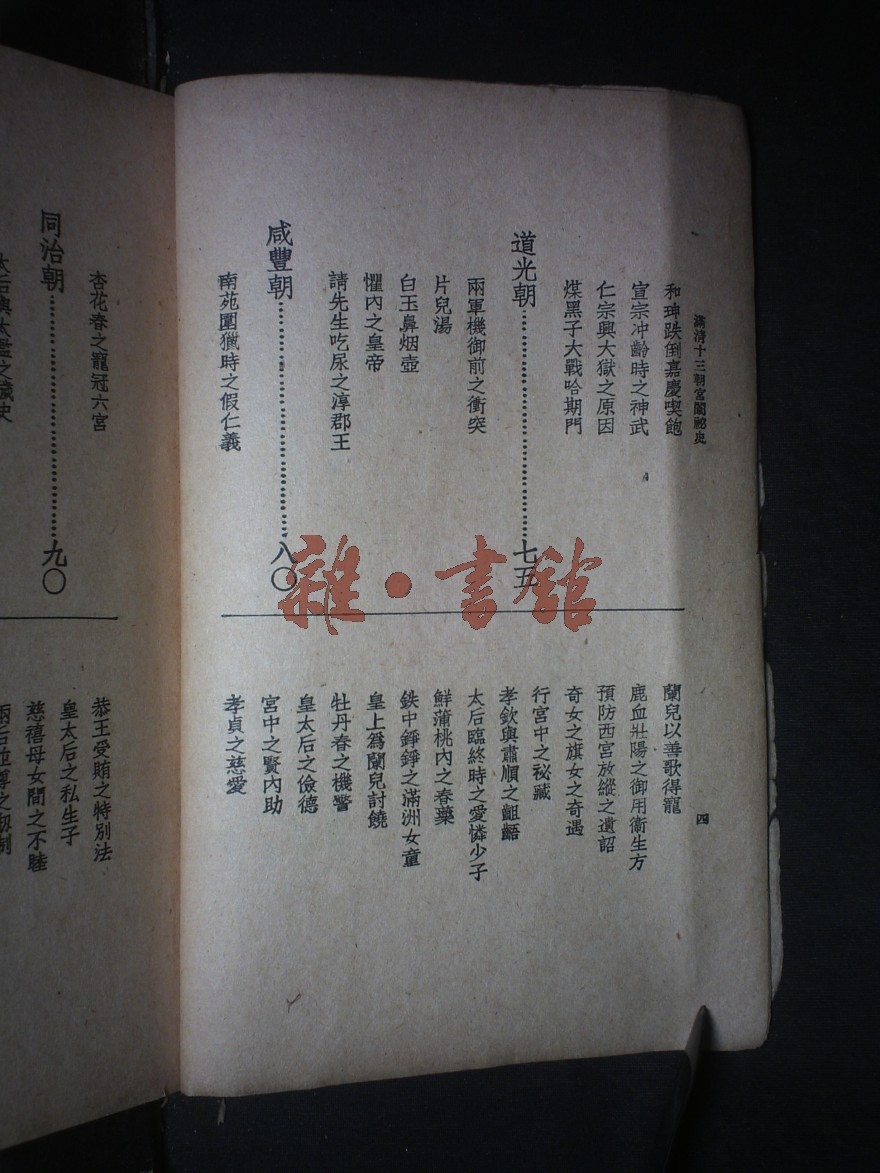 滿清十三朝宮闈祕史
和珅跌倒嘉慶喫飽
宣宗冲齡時之神武
仁宗興大獄之原因
煤黑子大戰哈期門
道光朝……七五
兩軍機御前之衝突
片兒湯
白玉鼻烟壺
懼內之皇帝
請先生吃尿之淳郡王
咸豐朝……八〇
南苑圍獵時之假仁義
四
蘭兒以善歌得寵
鹿血壯陽之御用衞生方
預防西宮放縱之遺詔
奇女之旗女之奇遇
行宮中之秘藏
孝欽與肅順之齟齬
太后臨終時之愛憐少子
鮮蒲桃內之春藥
鉄中錚錚之滿洲女童
皇上爲蘭兒討饒
牡丹春之機警
皇太后之儉德
宮中之賢內助
孝貞之慈愛
杏花春之寵冠六宮
同治朝……九〇
太后與太監之穢史
恭王受賄之特別法
皇太后之私生子
慈禧母女間之不睦
兩后並尊之
雜·書館